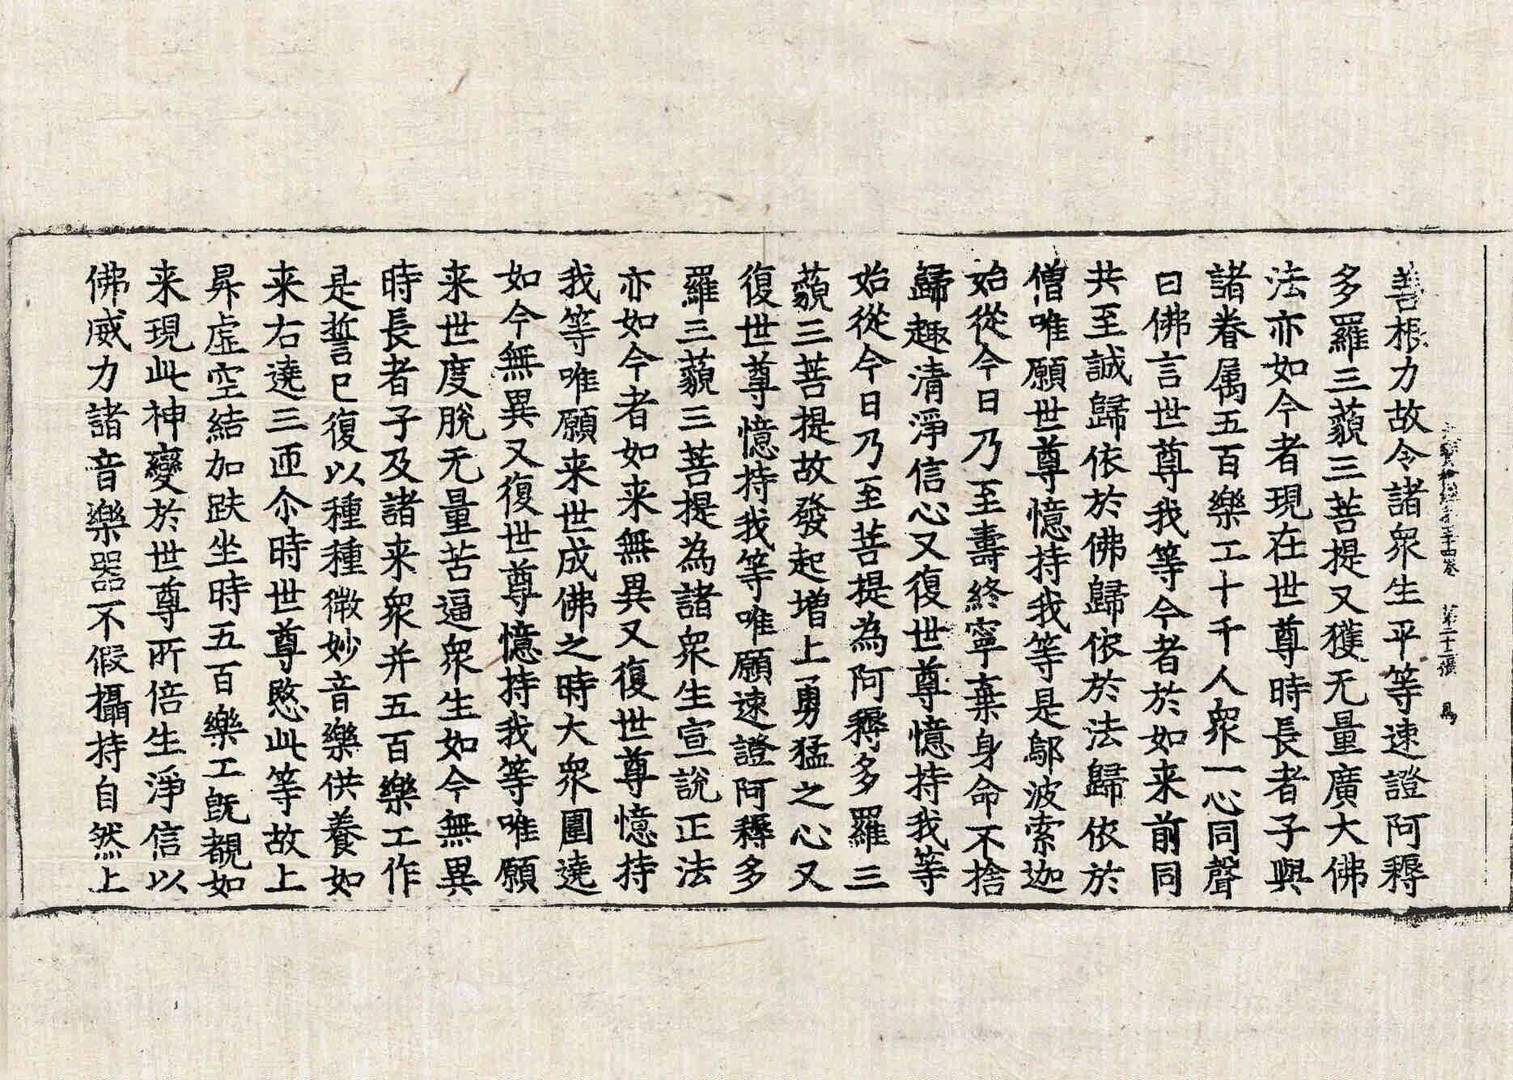 善根力故令諸衆生平等速證阿耨
多羅三藐三菩提又獲无量廣大佛
法亦如今者現在世尊時長者子與
諸眷属五百樂工十千人衆一心同聲
曰佛言世尊我等今者於如来前同
共至誠歸依於佛歸依於法歸依於
僧唯願世尊憶持我等是鄔波索迦
始從今日乃至壽終寧棄身命不捨
歸趣清淨信心又復世尊憶持我等
始從今日乃至菩提為阿耨多羅三
藐三菩提故發起增上勇猛之心又
復世尊憶持我等唯願速證阿耨多
羅三藐三菩提為諸衆生宣說正法
亦如今者如来無異又復世尊憶持
我等唯願来世成佛之時大衆圍遶
如今無異又復世尊憶持我等唯願
来世度脫无量苦逼衆生如今無異
時長者子及諸来衆并五百樂工作
是誓已復以種種微妙音樂供養如
来右遶三帀尒時世尊愍此等故上
昇虛空結加趺坐時五百樂工既覩如
来現此神變於世尊所倍生淨信以
佛威力諸音樂器不假攝持自然上